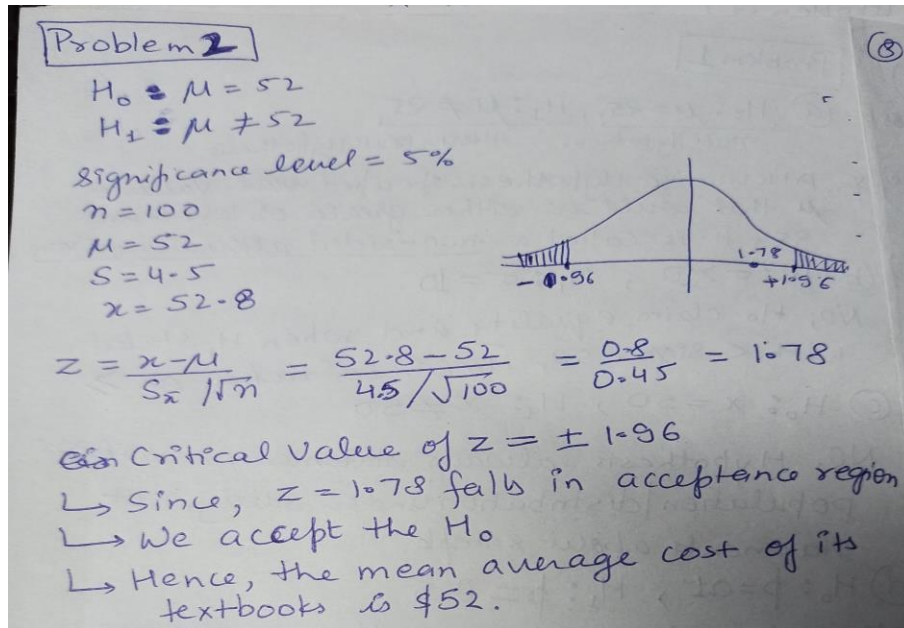 Problem 2
8
H₀ : μ = 52
H₁ : μ ≠ 52
significance level = 5%
n = 100
μ = 52
S = 4.5
x = 52.8
1.78
-1.96
+1.96
z = x-μ / Sx̄ /√n = 52.8 - 52 / 4.5/√100 = 0.8 / 0.45 = 1.78
Critical value of z = ± 1.96
↳ Since, z = 1.78 falls in acceptance region
↳ We accept the H₀
↳ Hence, the mean average cost of its
textbooks is $52.